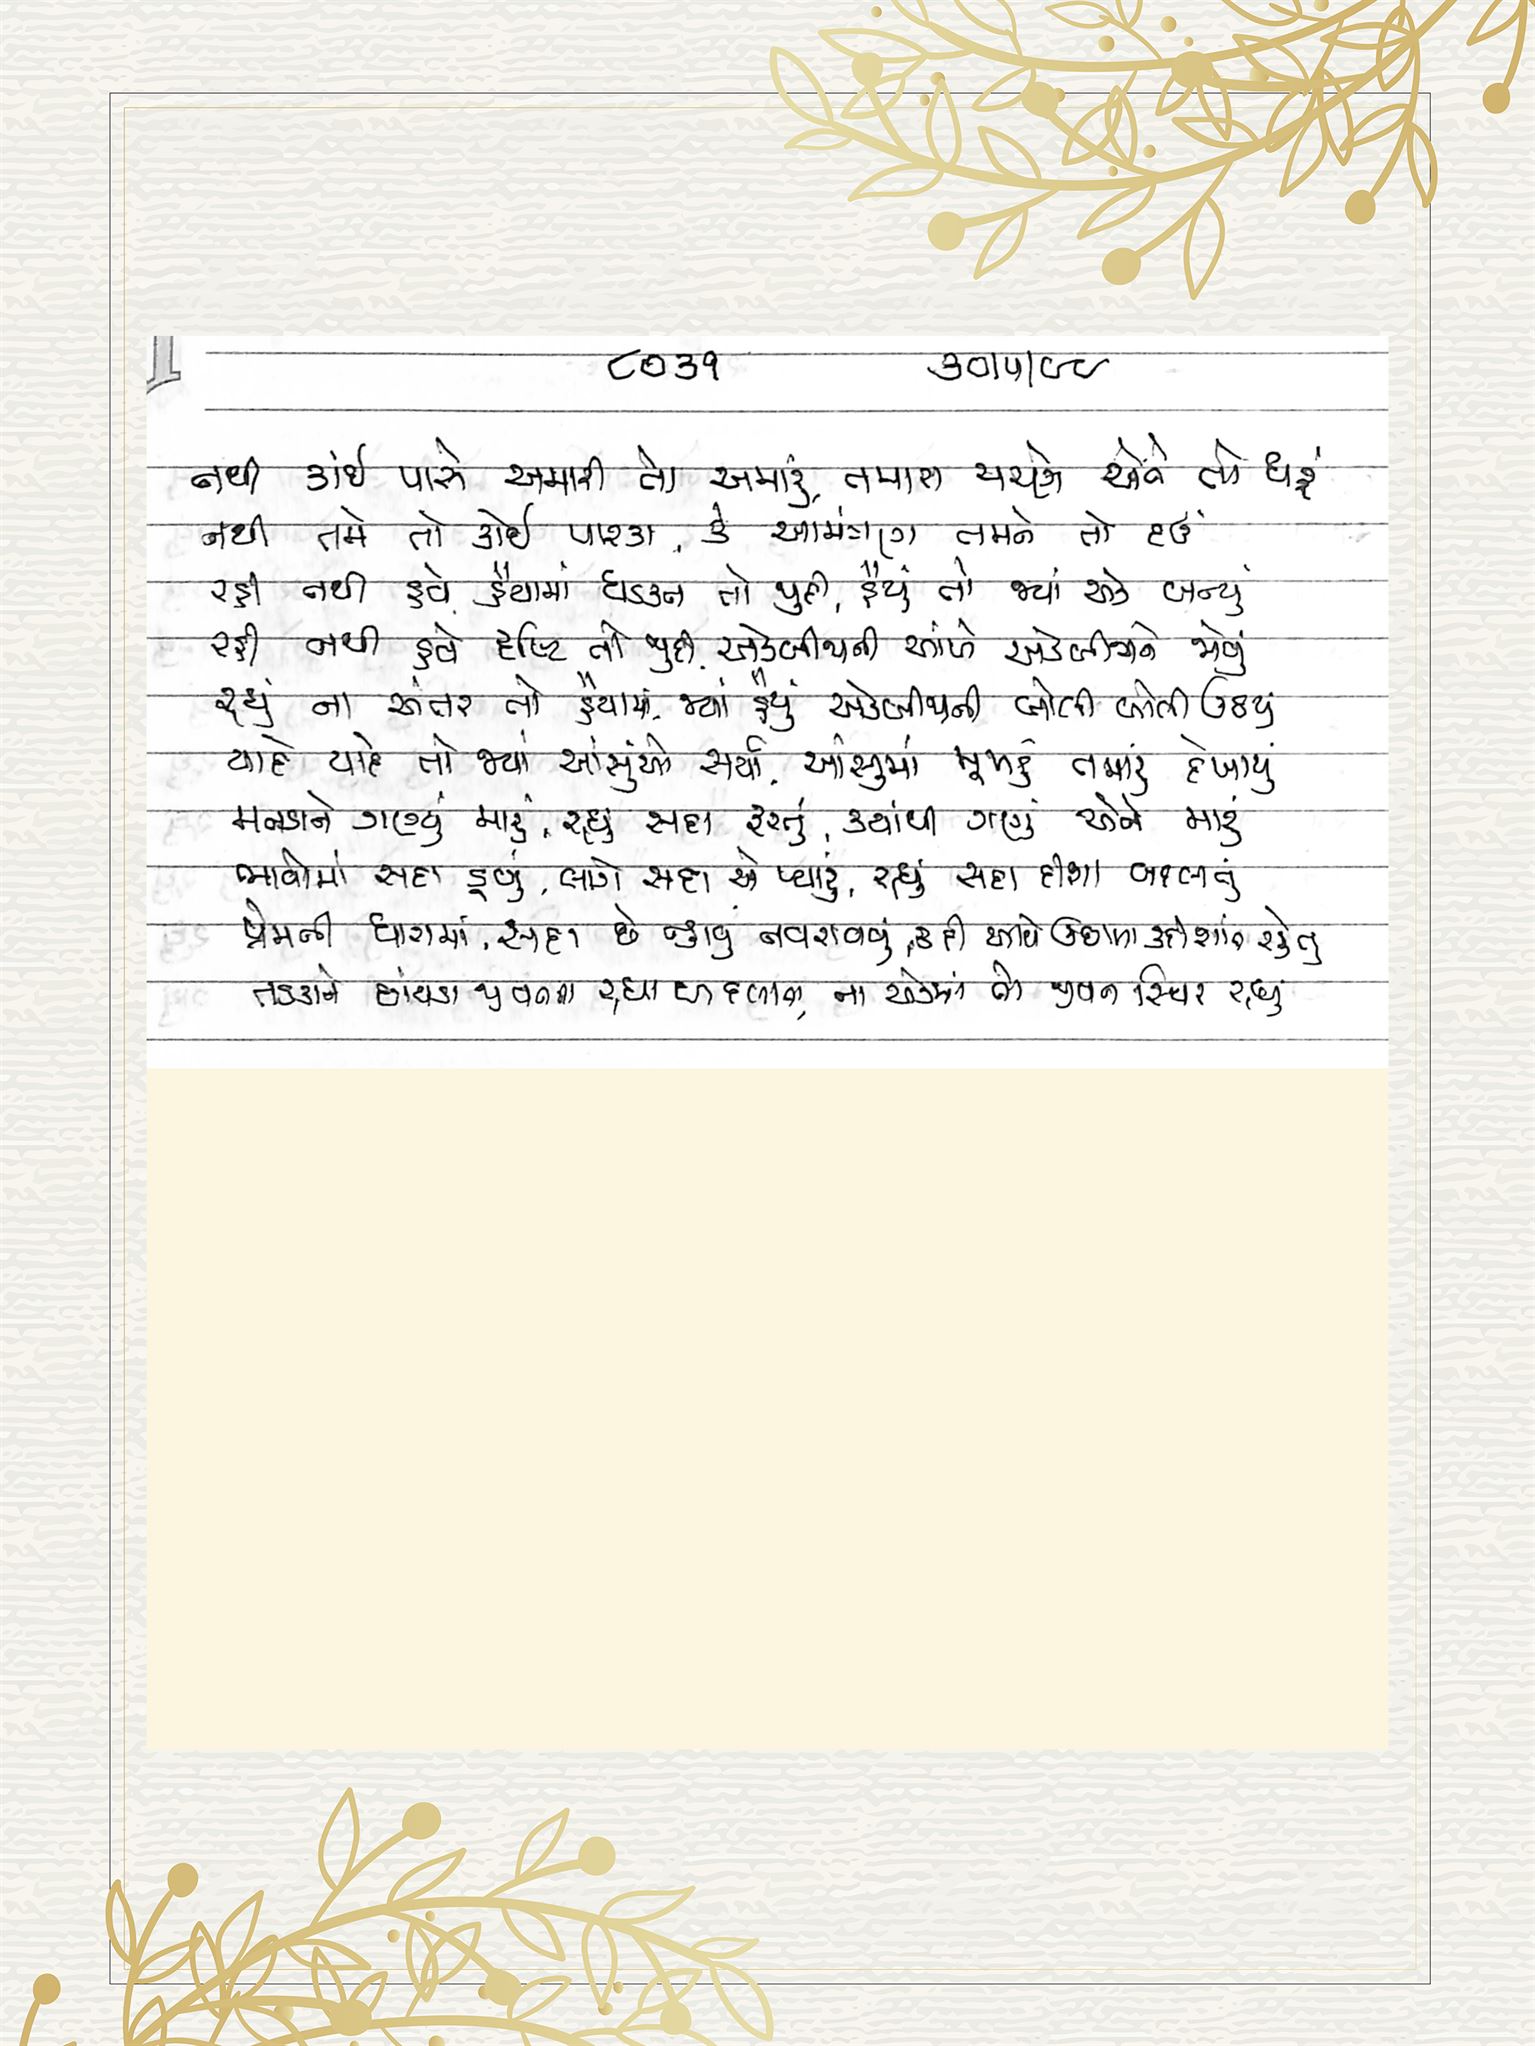 ૮૦૩૧ ૩૦/૫/૯૯
નથી કાંઈ પાસે અમારી તો અમારું, તમારા ચરણે એને તો ધરૂં
નથી તમે તો કોઈ પારકા, કે આમંત્રણ તમને તો દઉં
રહી નથી હવે હૈયામાં ધડકન તો જુદી, હૈયું તો જ્યાં એક બન્યું
રહી નથી હવે દૃષ્ટિ તો જુદી, એકબીજાની આંખે એકબીજાને જોવું
રહ્યું ના અંતર તો હૈયામાં, જ્યાં હૈયું એકબીજાનું બોલી બોલી ઉઠયું
યાદે યાદે તો જ્યાં આંસુંઓ સર્યા, આંસુમાં મુખડું તમારું દેખાયું
મનડાને ગણ્યું મારું, રહ્યું સદા ફરતું, ક્યાંથી ગણું એને મારું
ભાવોમાં સદા ડૂબવું, લાગે સદા એ પ્યારું, રહ્યું સદા દીશા બદલતું
પ્રેમની ધારામાં, સદા છે ન્હાવું નવરાવવું, કદી
તડકાને છાંયડા જીવનમાં રહ્યા બદલાતા, ના એકમાં તો જીવન સ્થિર રહ્યું